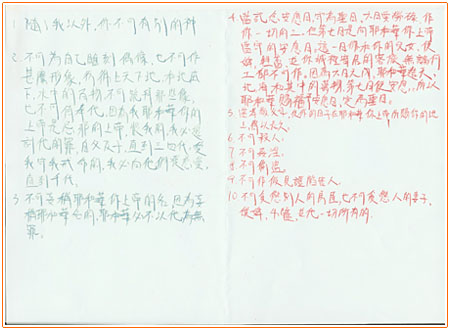 1. 除了我以外,你不可有別的神
2. 不可為自己雕刻偶像,也不可作
甚麼形像,彷彿上天下地和地底下
水中的百物,不可跪拜那些像,
也不可事奉它,因為我耶和華你的
上帝是忌邪的上帝,恨我的,我必追
討他的罪,自父及子,直到三四代,愛
我守我誡命的,我必向他們發慈愛,
直到千代。
3. 不可妄稱耶和華你上帝的名,因為妄
稱耶和華名的,耶和華必不以他為無
罪。
4. 當記念安息日,守為聖日,六日要勞碌作
你一切的工,但第七日是向耶和華你上帝
當守的安息日,這一日你和你的兒女,僕
婢,牲畜,並你城裡寄居的客旅,無論何
工都不可作,因為六日之內,耶和華造天、
地、海和其中的萬物,第七日便安息,所以
耶和華賜福與安息日,定為聖日。
5. 當孝敬父母,使你的日子在耶和華你上帝所賜你的地
上,得以長久。
6. 不可殺人。
7. 不可姦淫。
8. 不可偷盜。
9. 不可作假見證陷害人。
10. 不可貪戀別人的房屋,也不可貪戀人的妻子、
僕婢,牛驢,並他一切所有的。